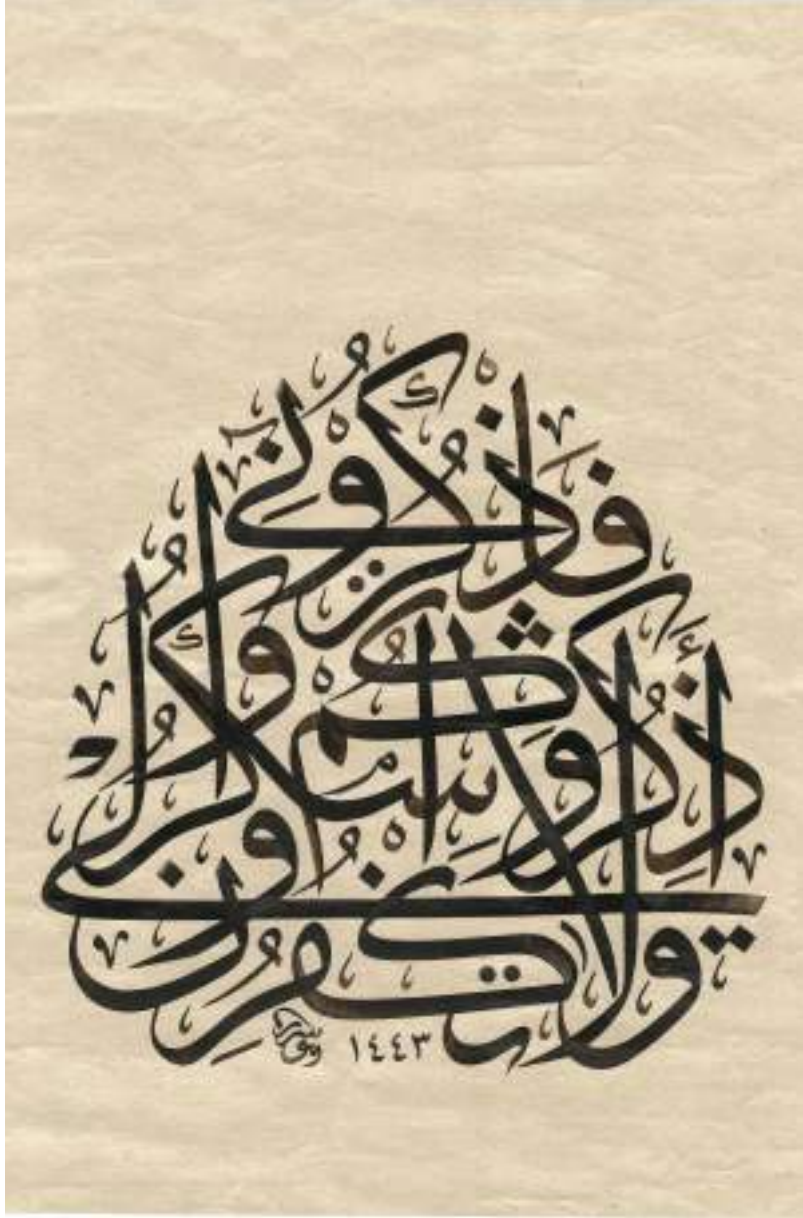 فَاذْكُرُونِي أَذْكُرْكُمْ وَاشْكُرُوا لِي وَلَا تَكْفُرُونِ
١٤٤٣